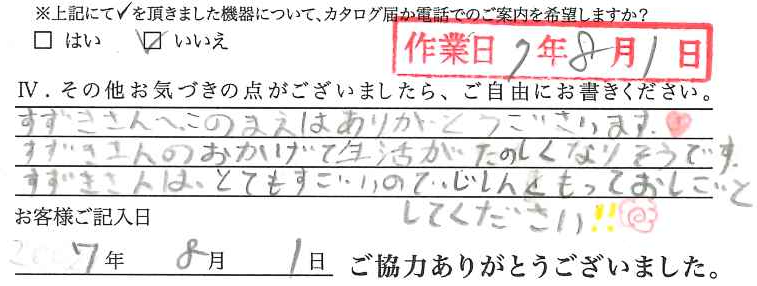 ※上記にて✓を頂きました機器について、カタログ届か電話でのご案内を希望しますか?
□ はい ☑ いいえ
作業日 7年8月1日
Ⅳ.その他お気づきの点がございましたら、ご自由にお書きください。
すずきさんへ、このまえはありがとうございます。
すずきさんのおかげで生活がたのしくなりそうです。
すずきさんは、とてもすごいので、じしんをもっておしごと
してください!!
お客様ご記入日
2007年 8月 1日
ご協力ありがとうございました。